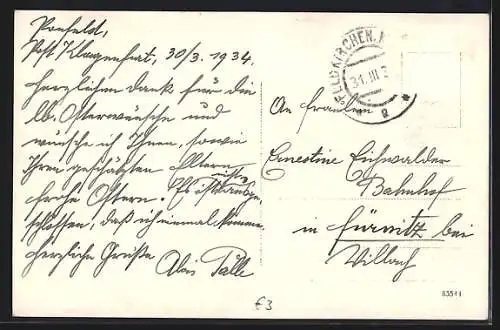 Ponfeld,
Post Klagenfurt, 30/3. 1934.
Herzlichen Dank für die
lb. Osterwünsche und
wünsche ich Ihnen, sowie
Ihren geschätzten Eltern
frohe Ostern. Es ist
schlossen, daß ich einmal komme.
Herzliche Grüße
Alois
FELDKIRCHEN
31. III
An Fräulein
Ernestine Eichwalder
Bahnhof
in Fürnitz bei
Villach
£3
63511